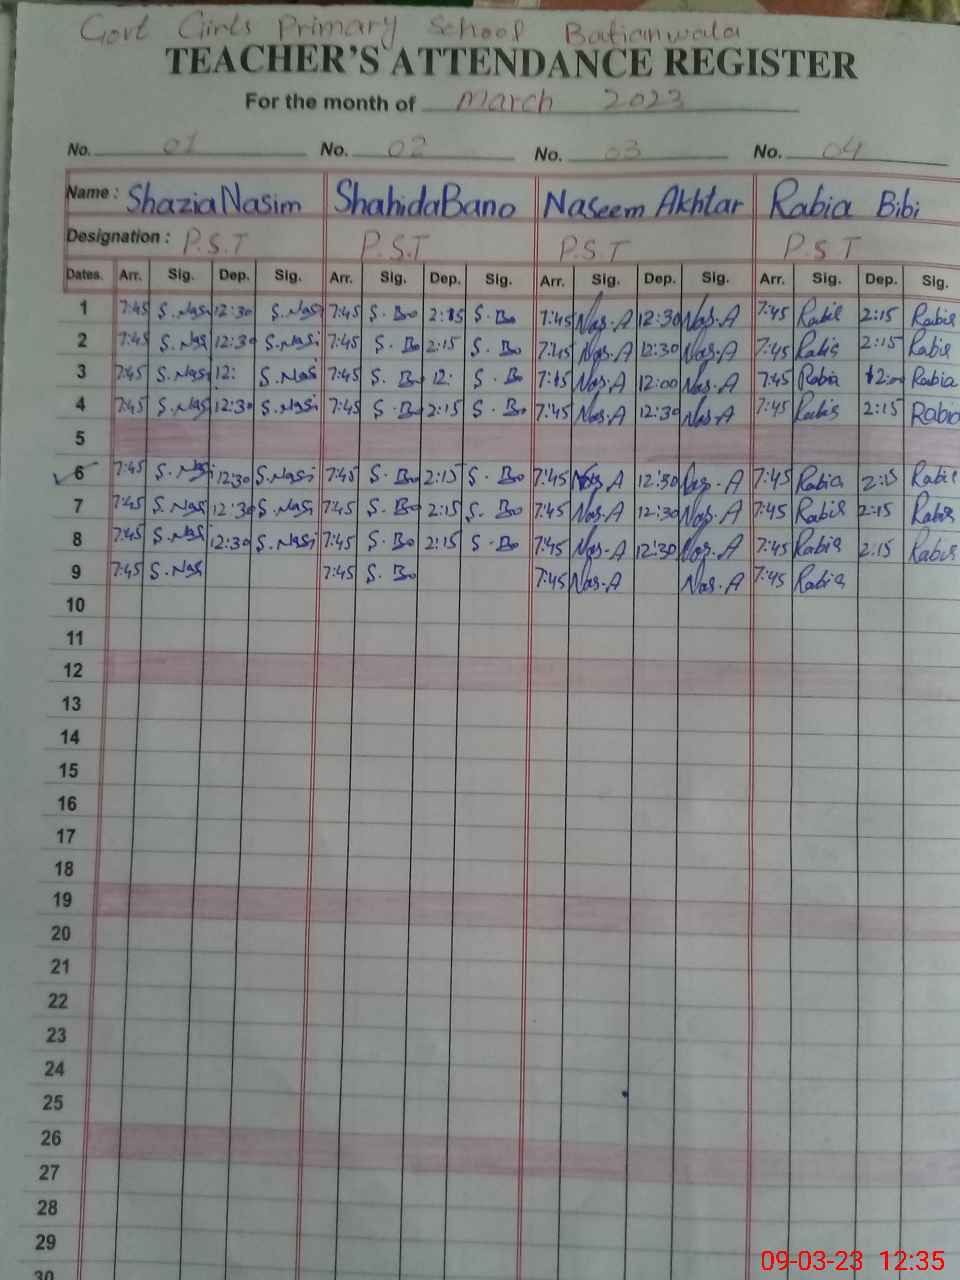 Govt Girls Primary School Batianwala
TEACHER'S ATTENDANCE REGISTER
For the month of March 2023
No. 01 No. 02 No. 03 No. 04
Name : Shazia Nasim Shahida Bano Naseem Akhtar Rabia Bibi
Designation : P.S.T P.S.T P.S.T P.S.T
Dates. Arr. Sig. Dep. Sig. Arr. Sig. Dep. Sig. Arr. Sig. Dep. Sig. Arr. Sig. Dep. Sig.
1 7:45 S.Nasi 12:30 S.Nasi 7:45 S.Bo 2:15 S.Bo 7:45 Nas.A 12:30 Nas.A 7:45 Rabia 2:15 Rabia
2 7:45 S.Nasi 12:30 S.Nasi 7:45 S.Bo 2:15 S.Bo 7:45 Nas.A 12:30 Nas.A 7:45 Rabia 2:15 Rabia
3 7:45 S.Nasi 12: S.Nasi 7:45 S.Bo 12: S.Bo 7:45 Nas.A 12:00 Nas.A 7:45 Rabia 12:00 Rabia
4 7:45 S.Nasi 12:30 S.Nasi 7:45 S.Bo 2:15 S.Bo 7:45 Nas.A 12:30 Nas.A 7:45 Rabia 2:15 Rabia
5
6 7:45 S.Nasi 12:30 S.Nasi 7:45 S.Bo 2:15 S.Bo 7:45 Nas.A 12:30 Nas.A 7:45 Rabia 2:15 Rabia
7 7:45 S.Nasi 12:30 S.Nasi 7:45 S.Bo 2:15 S.Bo 7:45 Nas.A 12:30 Nas.A 7:45 Rabia 2:15 Rabia
8 7:45 S.Nasi 12:30 S.Nasi 7:45 S.Bo 2:15 S.Bo 7:45 Nas.A 12:30 Nas.A 7:45 Rabia 2:15 Rabia
9 7:45 S.Nasi 7:45 S.Bo 7:45 Nas.A Nas.A 7:45 Rabia
10
11
12
13
14
15
16
17
18
19
20
21
22
23
24
25
26
27
28
29
30
09-03-23 12:35